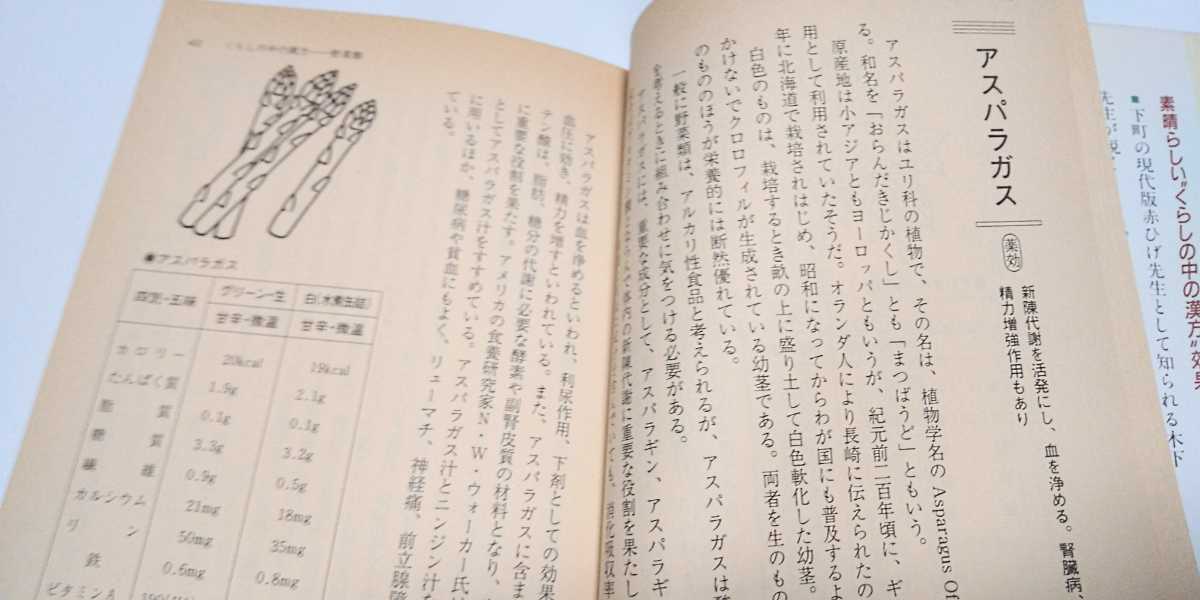 アスパラガス
薬効
新陳代謝を活発にし、血を浄める。腎臓病、
精力増強作用もあり
アスパラガスはユリ科の植物で、その名は、植物学名の Asparagus Of
る。和名を「おらんだきじかくし」とも「まつばうど」ともいう。
原産地は小アジアともヨーロッパともいうが、紀元前二百年頃に、ギ
用として利用されていたそうだ。オランダ人により長崎に伝えられたの
年に北海道で栽培されはじめ、昭和になってからわが国にも普及するよ
白色のものは、栽培するとき畝の上に盛り土して白色軟化した幼茎。
かけないでクロロフィルが生成されている幼茎である。両者を生のもの
のもののほうが栄養的には断然優れている。
一般に野菜類は、アルカリ性食品と考えられるが、アスパラガスは酸
を考えるときに組み合わせに気をつける必要がある。
アスパラガスには、重要な成分として、アスパラギン、アスパラギ
体内の新陳代謝に重要な役割を果たし
消化吸収率
素晴らしい"くらしの中の漢方"効果
■下町の現代版赤ひげ先生として知られる木下
先生が説
40 くらしの中の漢方──野菜類
アスパラガスは血を浄めるといわれ、利尿作用、下剤としての効果
血圧に効き、精力を増すといわれている。また、アスパラガスに含ま
テン酸は、脂肪、糖分の代謝に必要な酵素や副腎皮質の材料となり、
に重要な役割を果たす。アメリカの食養研究家N・W・ウォーカー氏は
としてアスパラガス汁をすすめている。アスパラガス汁とニンジン汁を
に用いるほか、糖尿病や貧血にもよく、リューマチ、神経痛、前立腺障
ている。
●アスパラガス
四気・五味 グリーン・生 白(水煮缶詰)
甘辛・微温 甘辛・微温
カロリー 20kcal 19kcal
たんぱく質 1.9g 2.1g
脂質 0.1g 0.1g
糖質 3.3g 3.2g
繊維 0.9g 0.5g
カルシウム 21mg 18mg
リン 50mg 35mg
鉄 0.6mg 0.8mg
ビタミンA